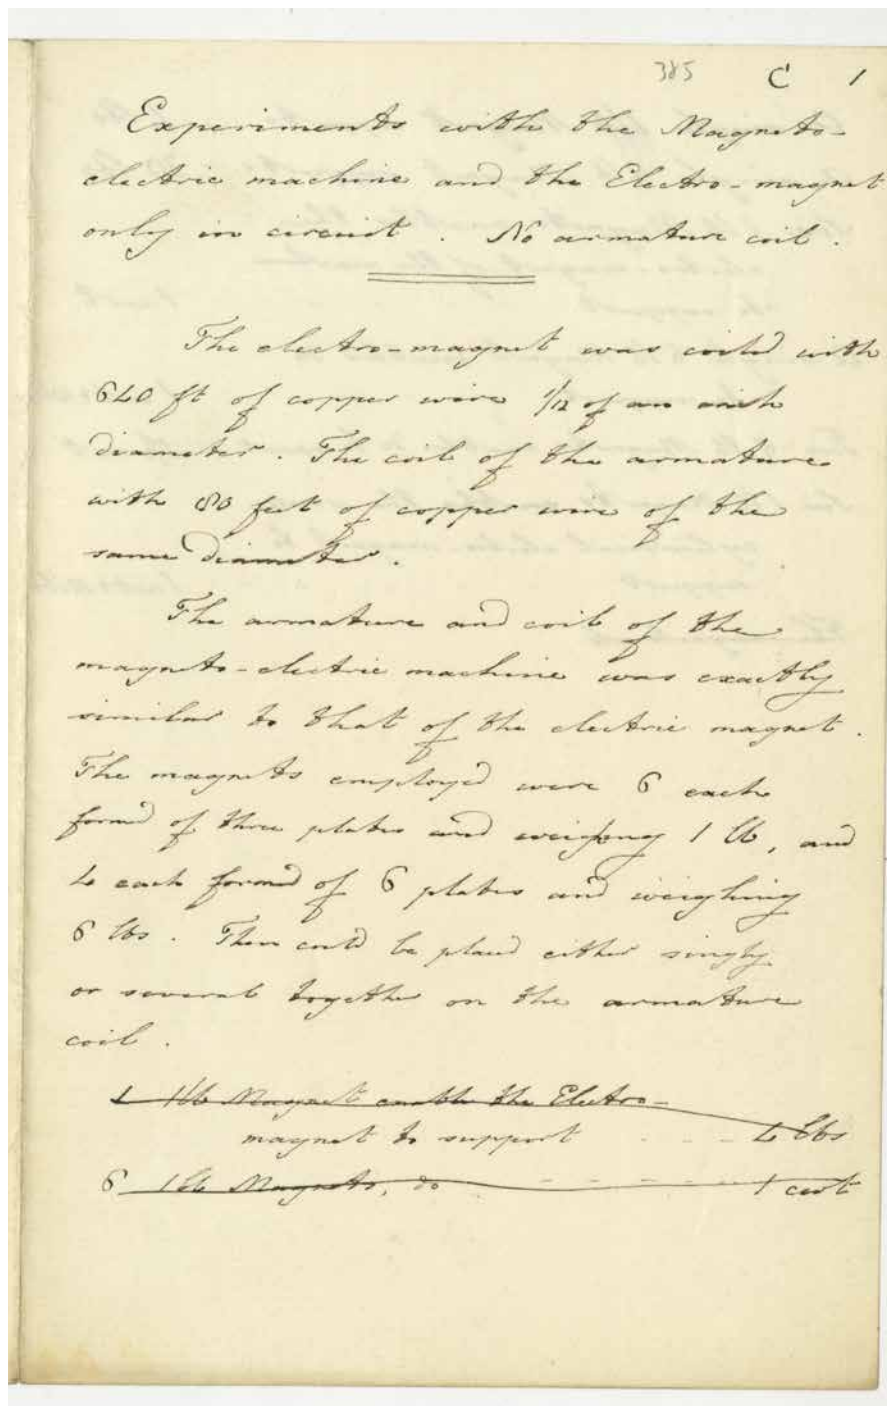 385 C 1
Experiments with the Magneto-
electric machine and the Electro-magnet
only in circuit. No armature coil.
The electro-magnet was coiled with
640 ft of copper wire 1/12 of an inch
diameter. The coil of the armature
with 80 feet of copper wire of the
same diameter.
The armature and coil of the
magneto-electric machine was exactly
similar to that of the electric magnet.
The magnets employed were 6 each
formed of three plates and weighing 1 lb, and
4 each formed of 6 plates and weighing
6 lbs. These could be placed either singly
or several together on the armature
coil.
1 1lb Magnet enable the Electro-
magnet to support - - - 4 lbs
6 1lb Magnets, do - - - - 1 cwt